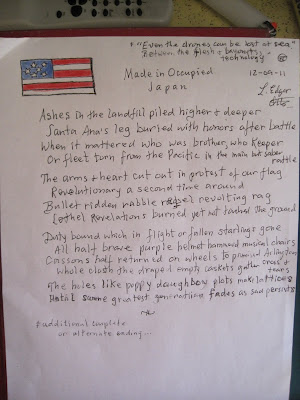 * "Even the drones can be lost at sea"
Between the flesh & bayonets,
technology
Made in Occupied
Japan
12-09-11
L. Edgar Otto
Ashes in the landfill piled higher & deeper
Santa Ana's leg buried with honors after battle
When it mattered who was brother, who keeper
Or fleet turn from the Pacific in the main but saber
rattle
The arms & heart cut out in protest of our flag
Revolutionary a second time around
Bullet ridden rabble rebel revolting rag
Revelations burned yet not touched the ground
Duty bound which in flight or fallen starlings gone
All half brave purple helmet hammered musical chairs
Cassons half returned on wheels to Arlington
Whole cloth the draped empty caskets gather cross &
tears
The holes like poppy doughboy plots make lattices
Until some greatest generation fades as sad persists
~
# additional couplet
or alternate ending...